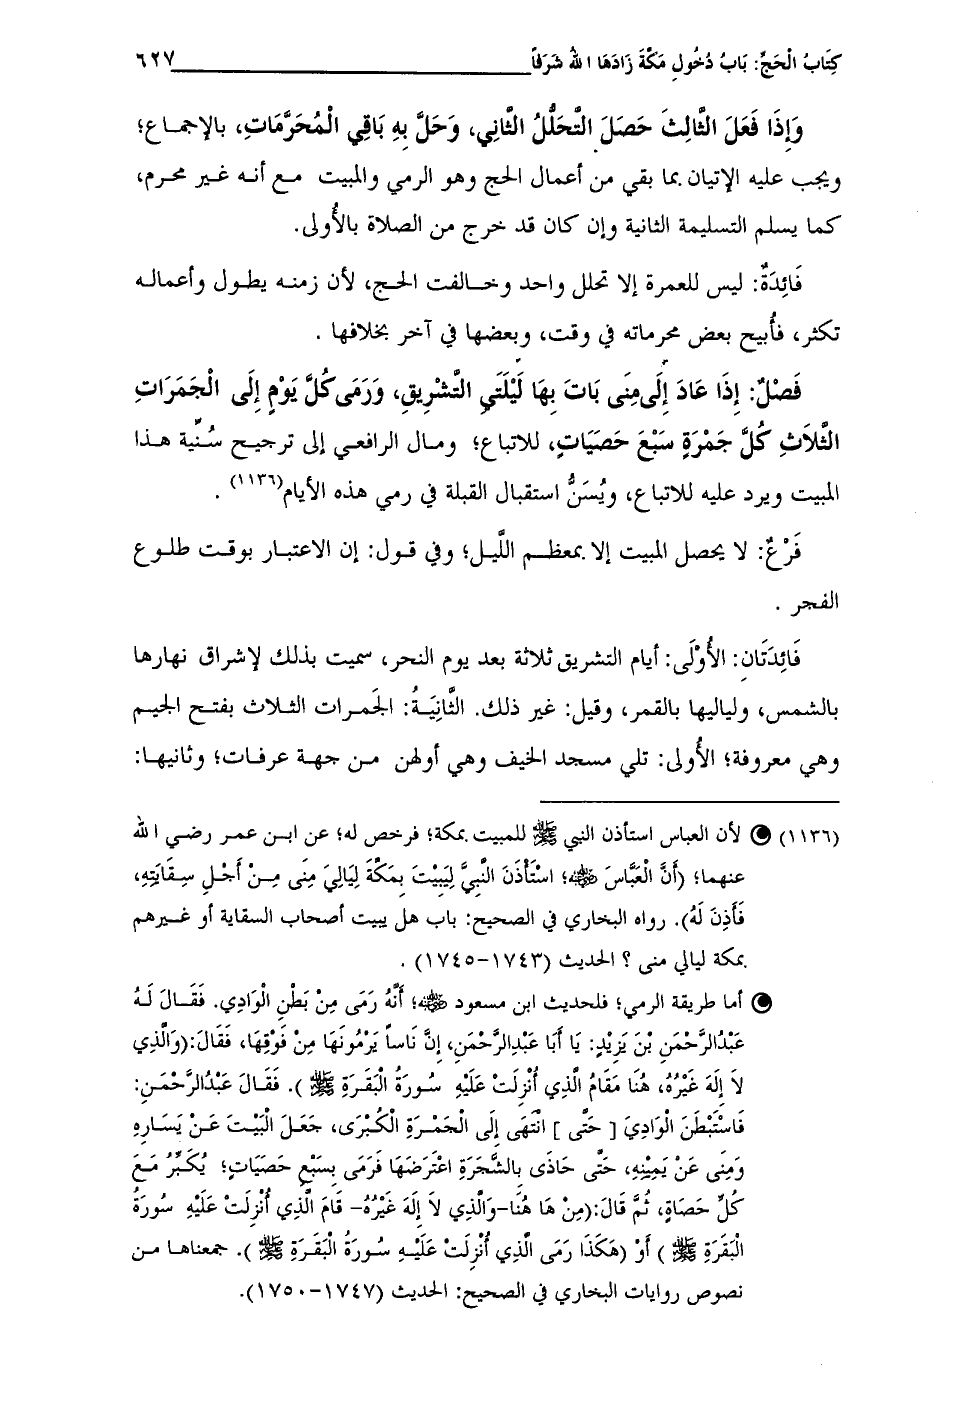 كِتَابُ الْحَجِّ: بَابُ دُخُولِ مَكَّةَ زَادَهَا اللهُ شَرَفاً ٦٢٧
وَإِذَا فَعَلَ الثَّالِثَ حَصَلَ التَّحَلُّلُ الثَّانِي، وَحَلَّ بِهِ بَاقِي الْمُحَرَّمَاتِ، بالإجماع؛
ويجب عليه الإتيان بما بقي من أعمال الحج وهو الرمي والمبيت مع أنه غير محرم،
كما يسلم التسليمة الثانية وإن كان قد خرج من الصلاة بالأُولى.
فَائِدَةٌ: ليس للعمرة إلا تحلل واحد وخالفت الحج، لأن زمنه يطول وأعماله
تكثر، فأُبيح بعض محرماته في وقت، وبعضها في آخر بخلافها .
فَصْلٌ: إِذَا عَادَ إِلَى مِنَى بَاتَ بِهَا لَيْلَتَيِ التَّشْرِيقِ، وَرَمَى كُلَّ يَوْمٍ إِلَى الْجَمَرَاتِ
الثَّلاَثِ كُلَّ جَمْرَةٍ سَبْعَ حَصَيَاتٍ، للاتباع؛ ومال الرافعي إلى ترجيح سُنِّية هذا
المبيت ويرد عليه للاتباع، ويُسَنُّ استقبال القبلة في رمي هذه الأيام(١١٣٦) .
فَرْعٌ: لا يحصل المبيت إلا بمعظم اللَّيل؛ وفي قول: إن الاعتبار بوقت طلوع
الفجر .
فَائِدَتَان: الأُوْلَى: أيام التشريق ثلاثة بعد يوم النحر، سميت بذلك لإشراق نهارها
بالشمس، ولياليها بالقمر، وقيل: غير ذلك. الثَّانِيَةُ: الجمرات الثلاث بفتح الجيم
وهي معروفة؛ الأُولى: تلي مسجد الخيف وهي أولهن من جهة عرفات؛ وثانيها:
(١١٣٦) لأن العباس استأذن النبي ﷺ للمبيت بمكة؛ فرخص له؛ عن ابن عمر رضي الله
عنهما؛ (أَنَّ الْعَبَّاسَ ﷺ؛ اسْتَأْذَنَ النَّبِيَّ لِيَبِيْتَ بِمَكَّةَ لِيَالِيَ مِنَى مِنْ أَجْلِ سِقَايَتِهِ،
فَأَذِنَ لَهُ). رواه البخاري في الصحيح: باب هل يبيت أصحاب السقاية أو غيرهم
بمكة ليالي منى ؟ الحديث (١٧٤٣-١٧٤٥) .
أما طريقة الرمي؛ فلحديث ابن مسعود ﷺ؛ أَنَّهُ رَمَى مِنْ بَطْنِ الْوَادِي. فَقَالَ لَهُ
عَبْدُالرَّحْمَنِ بْنَ يَزِيْدٍ: يَا أَبَا عَبْدِالرَّحْمَنِ، إِنَّ نَاساً يَرْمُونَهَا مِنْ فَوْقِهَا، فَقَالَ:(وَالَّذِي
لاَ إِلَهَ غَيْرُهُ، هُنَا مَقَامُ الَّذِي أُنْزِلَتْ عَلَيْهِ سُورَةُ الْبَقَرَةِ ﷺ ). فَقَالَ عَبْدُالرَّحْمَنِ:
فَاسْتَبْطَنَ الْوَادِيَ [ حَتَّى ] انْتَهَى إِلَى الْجَمْرَةِ الْكُبْرَى، جَعَلَ الْبَيْتَ عَنْ يَسَارِهِ
وَمِنَى عَنْ يَمِيْنِهِ، حَتَّى حَاذَى بِالشَّجَرَةِ اعْتَرَضَهَا فَرَمَى بِسَبْعِ حَصَيَاتٍ؛ يُكَبِّرُ مَعَ
كُلِّ حَصَاةٍ، ثُمَّ قَالَ:(مِنْ هَا هُنَا-وَالَّذِي لاَ إِلَهَ غَيْرُهُ- قَامَ الَّذِي أُنْزِلَتْ عَلَيْهِ سُورَةُ
الْبَقَرَةِ ﷺ ) أَوْ (هَكَذَا رَمَى الَّذِي أُنْزِلَتْ عَلَيْهِ سُورَةُ الْبَقَرَةِ ﷺ ). جمعناها من
نصوص روايات البخاري في الصحيح: الحديث (١٧٤٧-١٧٥٠).